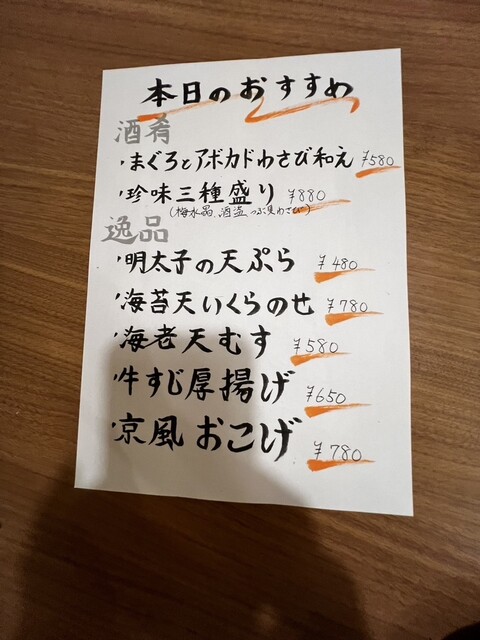 本日のおすすめ
酒肴
・まぐろとアボカドわさび和え ¥580
・珍味三種盛り ¥880
(梅水晶、酒盗、つぶ貝わさび)
逸品
・明太子の天ぷら ¥480
・海苔天いくらのせ ¥780
・海老天むす ¥580
・牛すじ厚揚げ ¥650
・京風おこげ ¥780